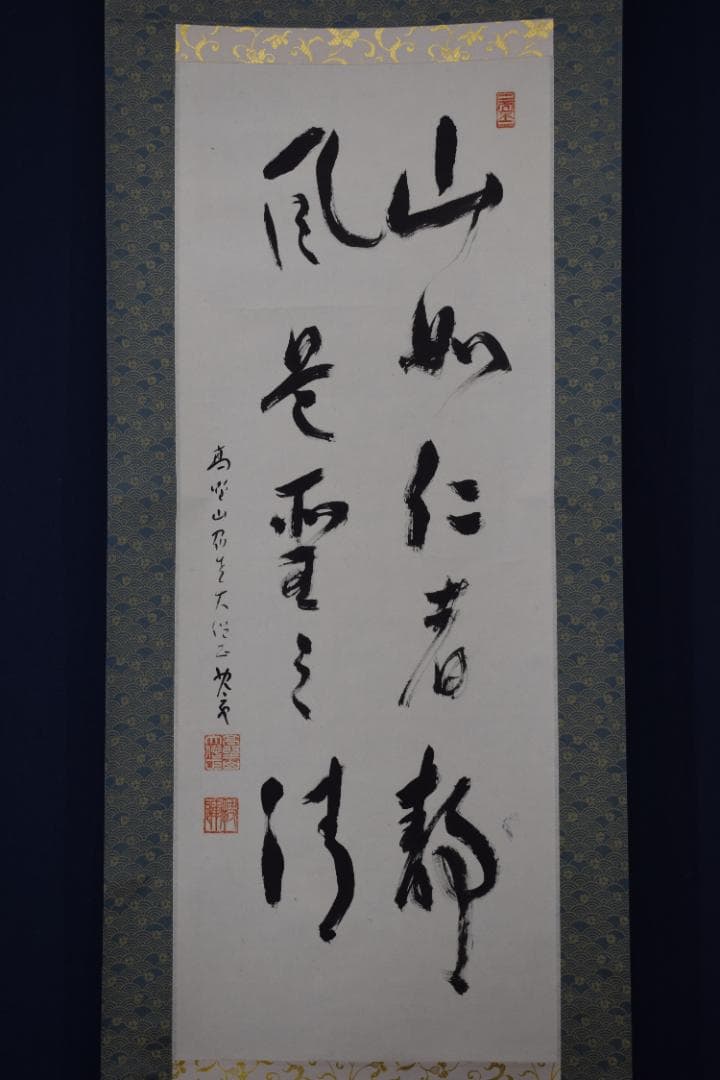 山如仁者静
風是聖之清
高野山管長大僧正